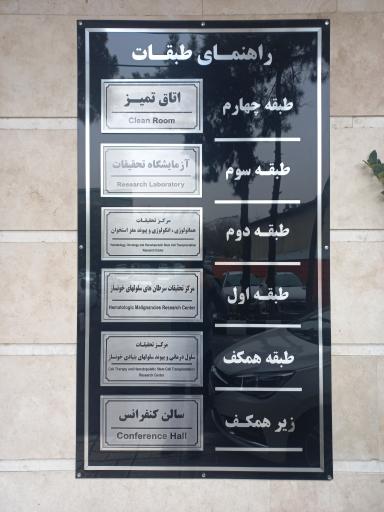 راهنمای طبقات
طبقه چهارم
اتاق تمیز
Clean Room
طبقه سوم
آزمایشگاه تحقیقات
Research Laboratory
طبقه دوم
مرکز تحقیقات
هماتولوژی، انکولوژی و پیوند مغز استخوان
Hematology, Oncology and Hematopoietic Stem Cell Transplantation
Research Center
طبقه اول
مرکز تحقیقات سرطان های سلولهای خونساز
Hematologic Malignancies Research Center
طبقه همکف
مرکز تحقیقات
سلول درمانی و پیوند سلولهای بنیادی خونساز
Cell Therapy and Hematopoietic Stem Cell Transplantation
Research Center
زیر همکف
سالن کنفرانس
Conference Hall